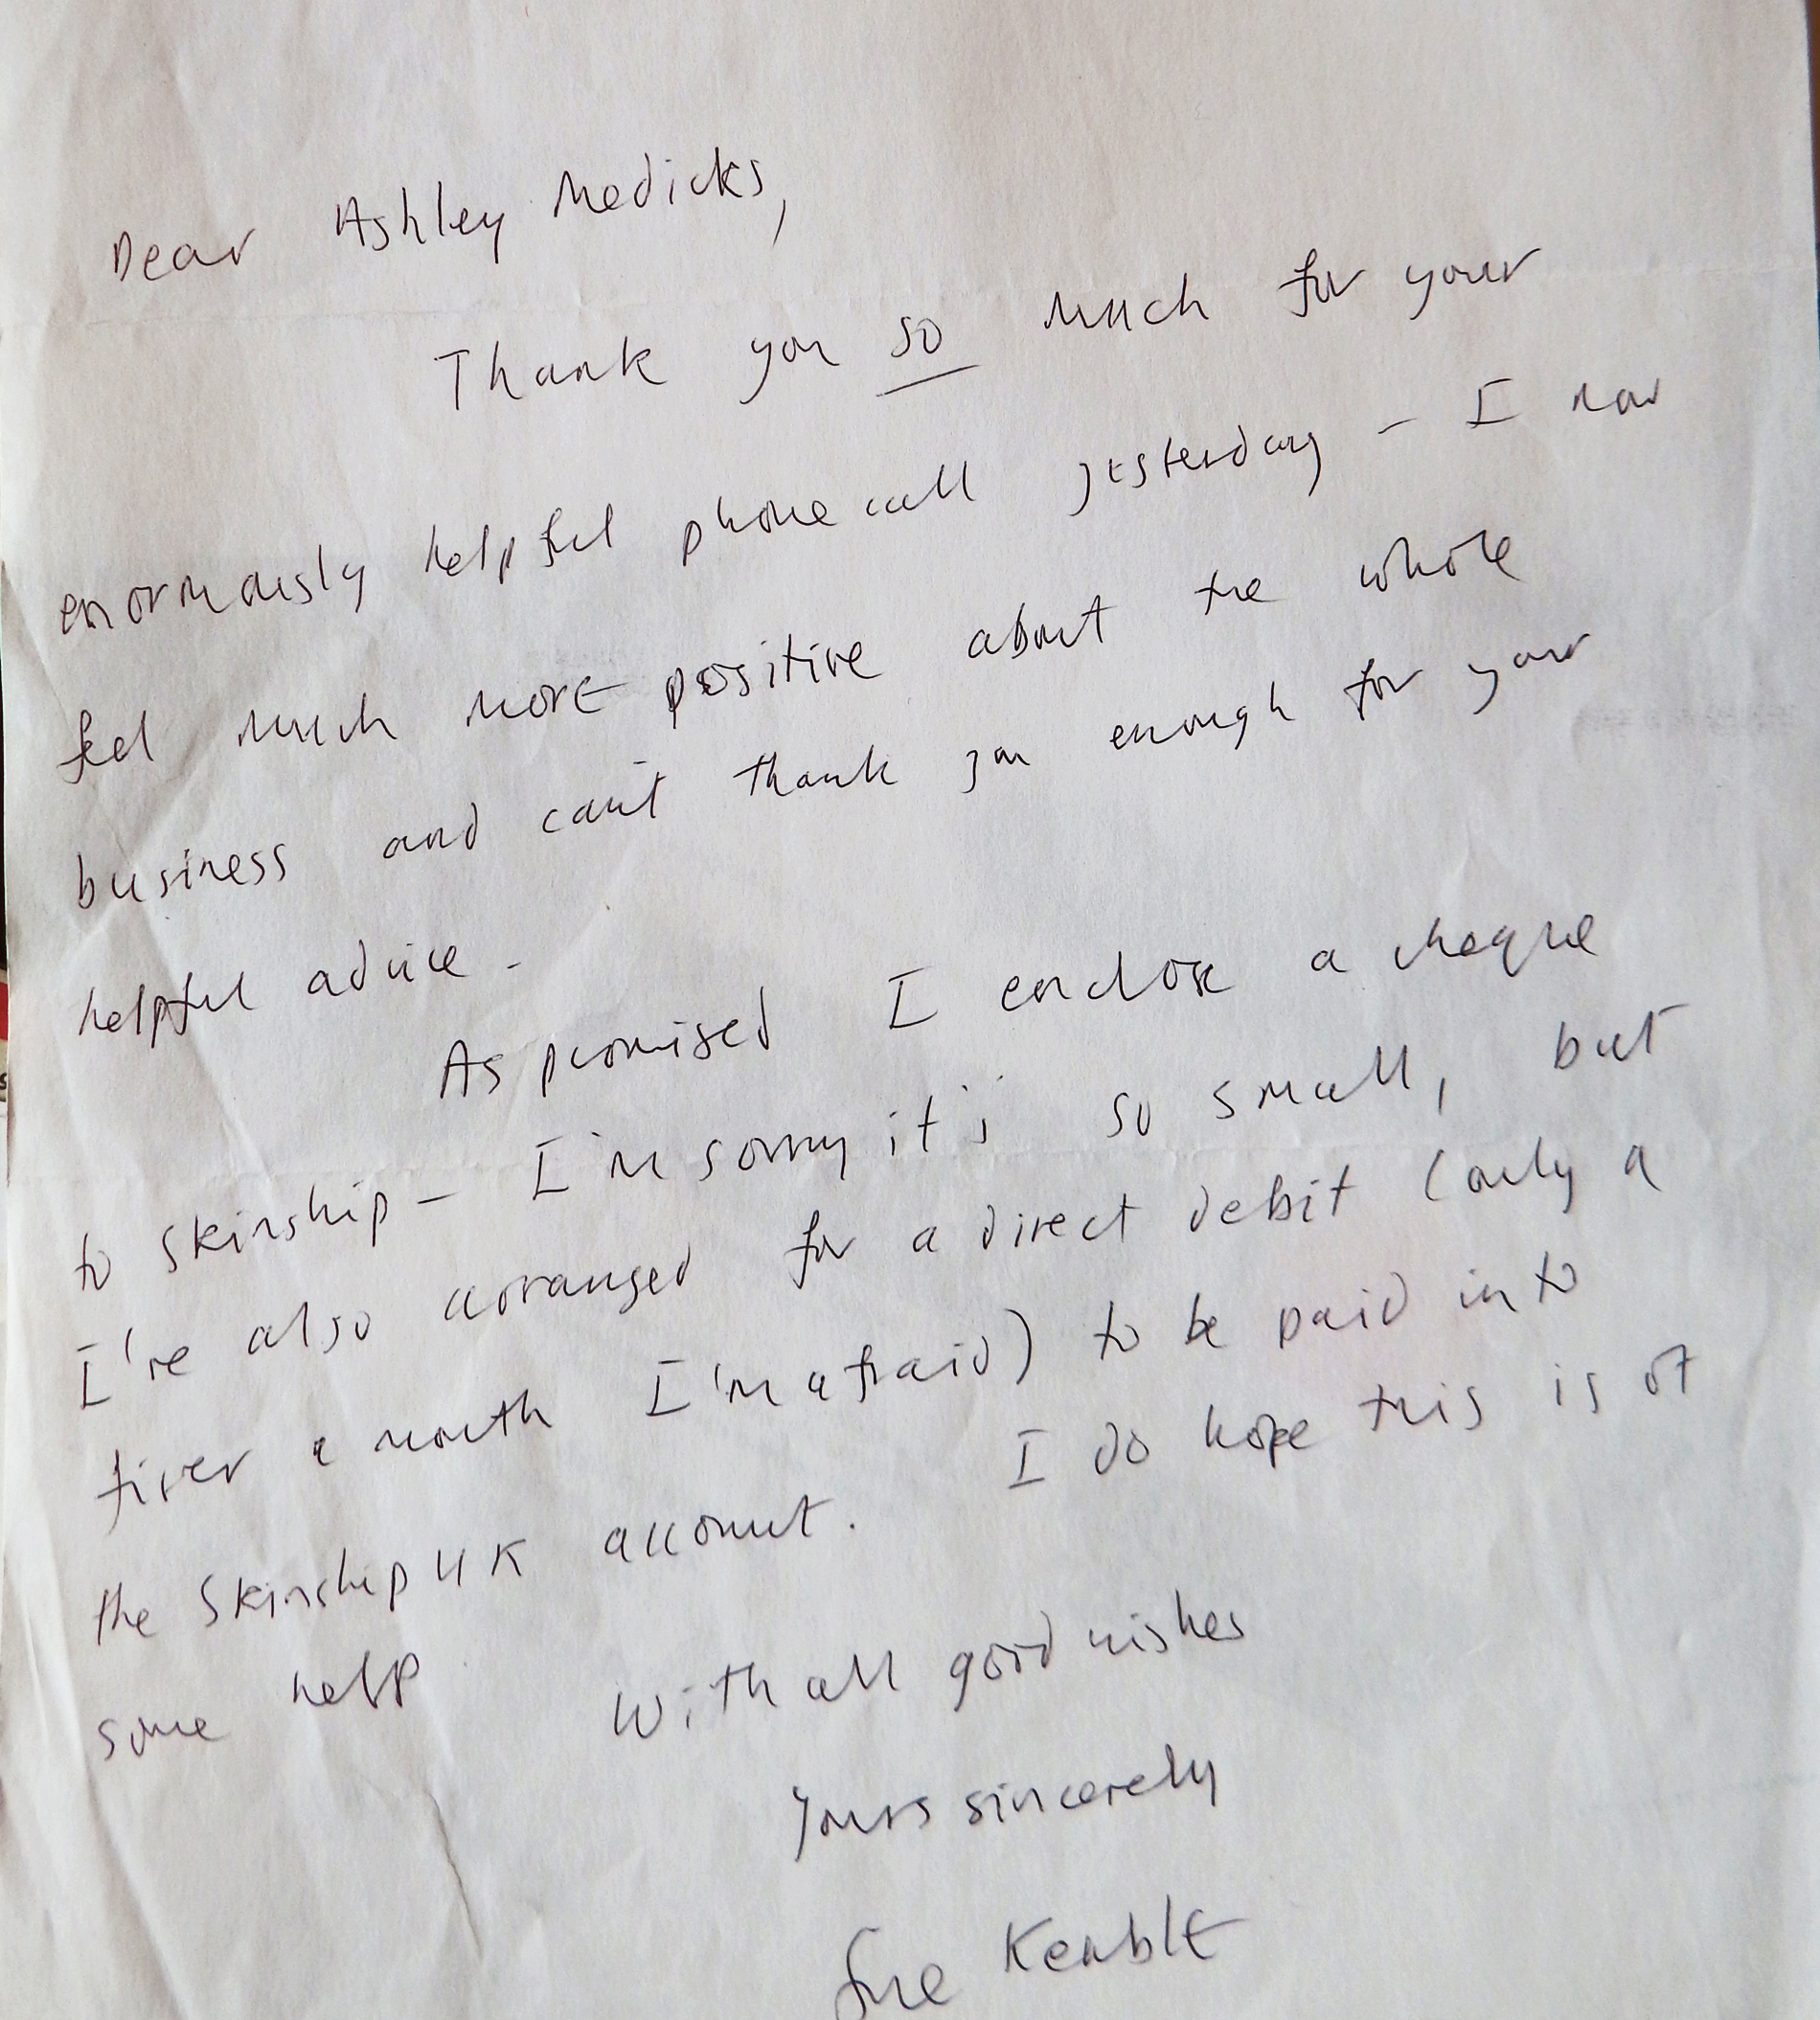 Dear Ashley Medicks,
Thank you so much for your
enormously helpful phone call yesterday – I now
feel much more positive about the whole
business and can't thank you enough for your
helpful advice.
As promised I enclose a cheque
to Skinship – I'm sorry it's so small, but
I've also arranged for a direct debit (only a
fiver a month I'm afraid) to be paid into
the Skinship UK account. I do hope this is of
some help.
With all good wishes
Yours sincerely
Sue Kenble